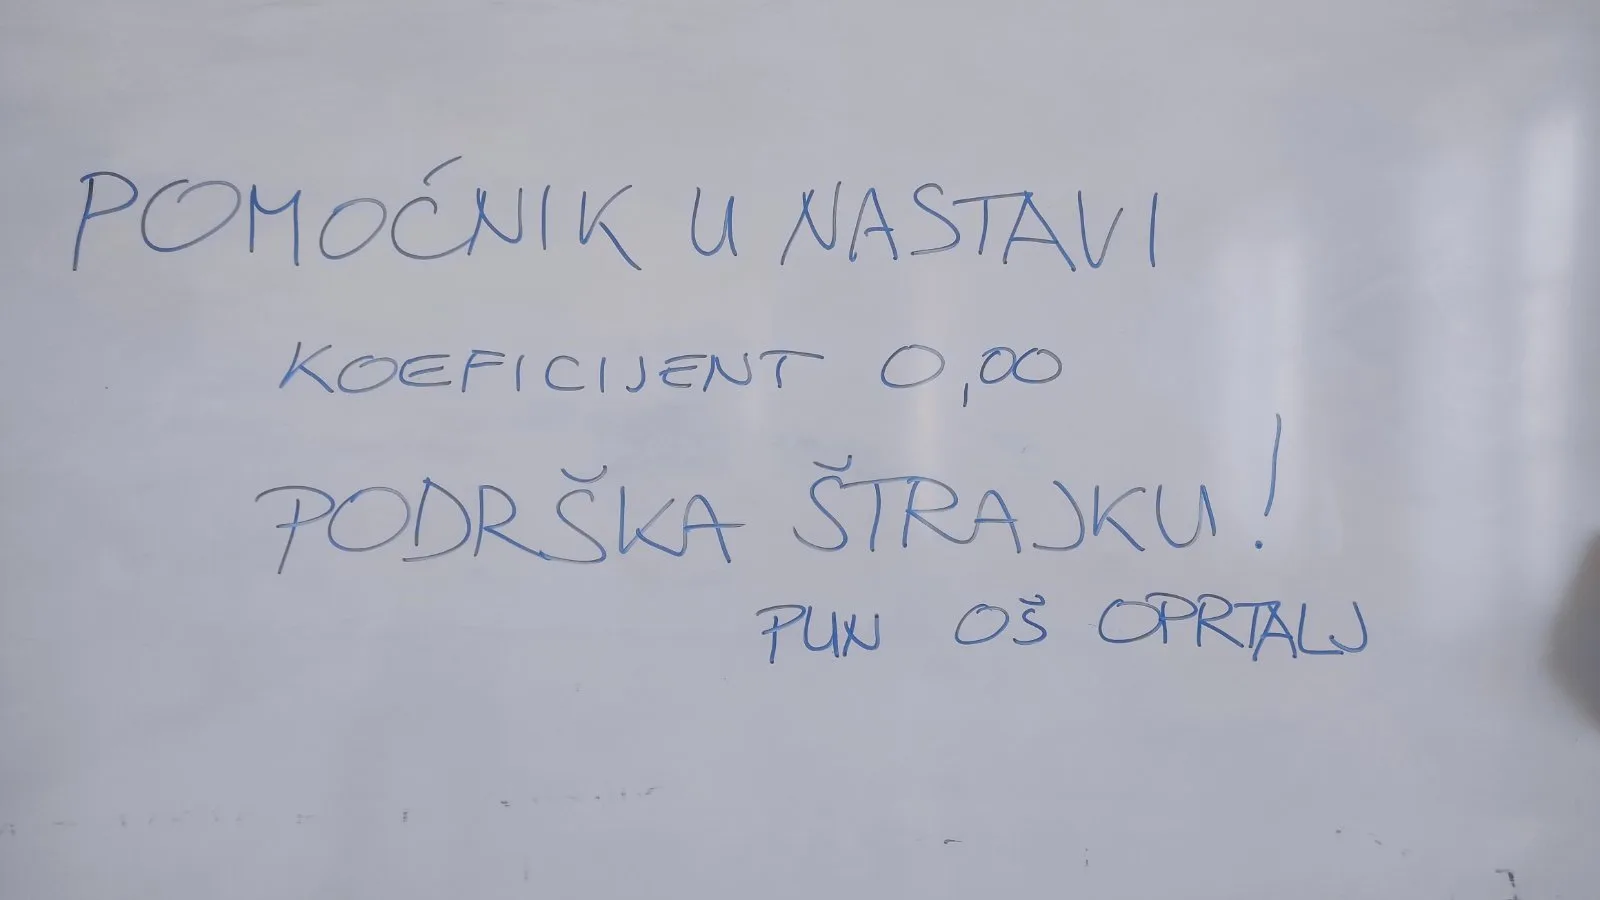 POMOĆNIK U NASTAVI
KOEFICIJENT 0,00
PODRŠKA ŠTRAJKU!
PUN OŠ OPRTALJ